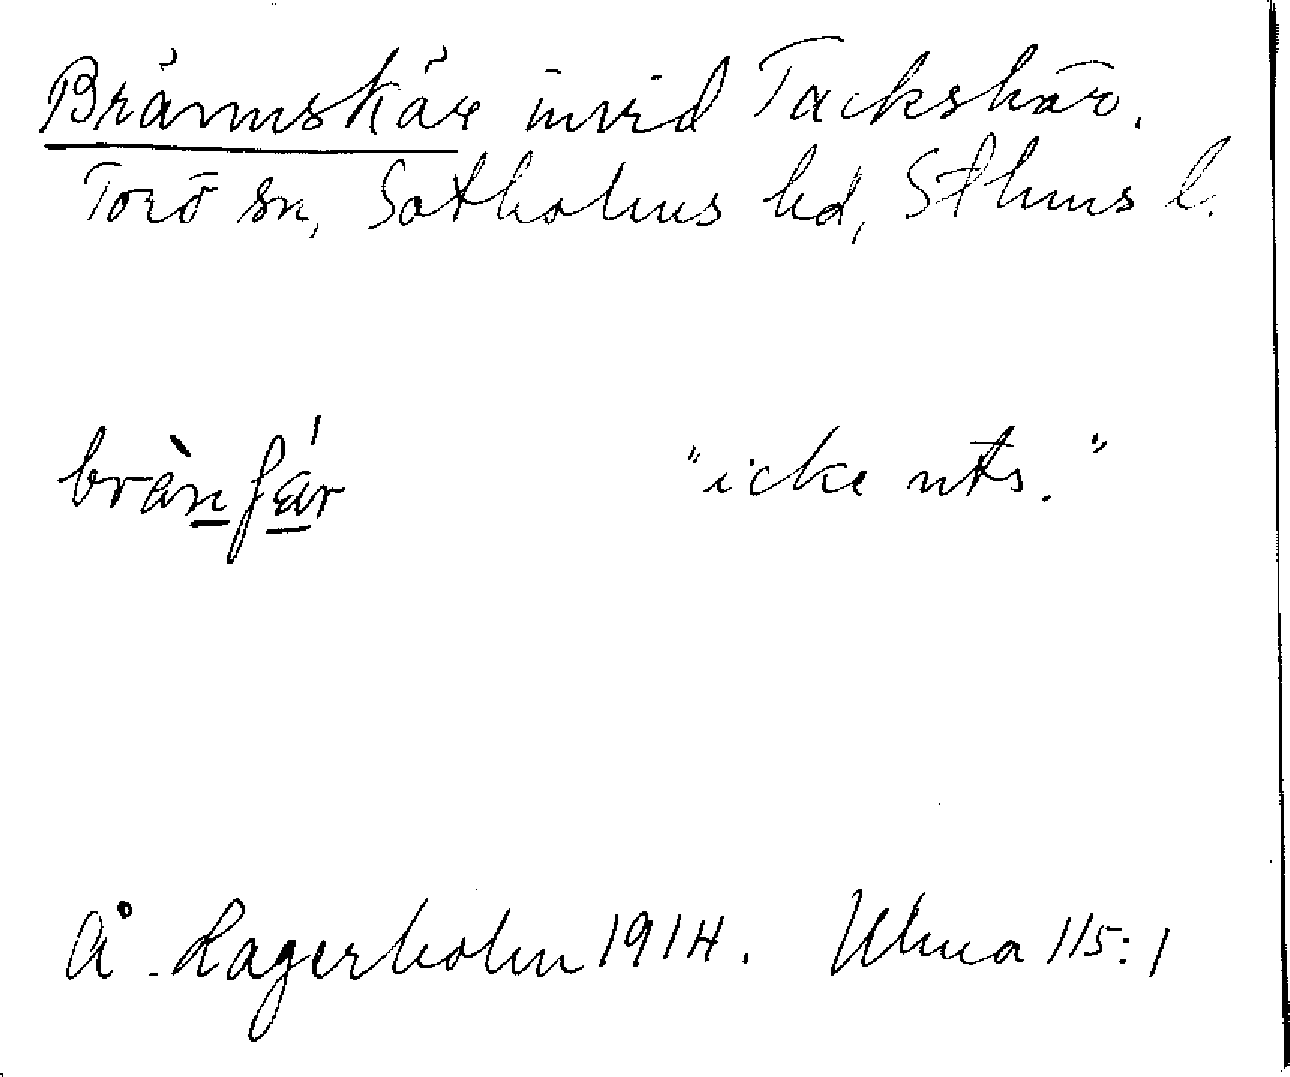 Brännskär invid Tackskär.
Torö sn, Sotholms hd, Sthms l.
brànʃä́r "icke uts."
Å. Lagerholm 1914. Ulma 115:1